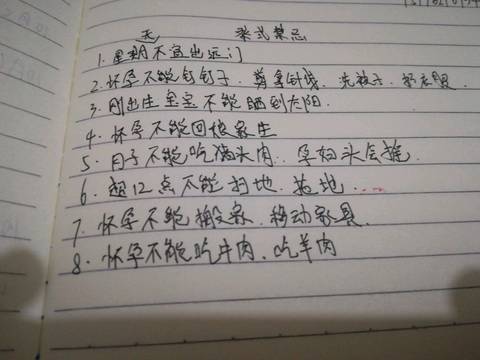 禁忌
1. 星期不宜出远门
2. 怀孕不能钉钉子、拿针线、洗被子
3. 刚出生宝宝不能晒到太阳.
4. 怀孕不能回娘家生
5. 月子不能吃猪头肉. 孕妇头会摇.
6. 超12点不能扫地. 拖地......
7. 怀孕不能搬家. 移动家具.
8. 怀孕不能吃牛肉. 吃羊肉